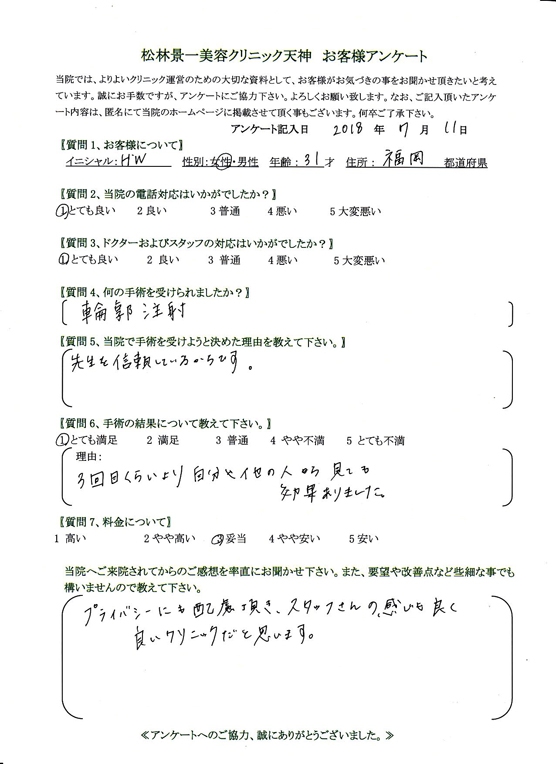 松林景一美容クリニック天神　お客様アンケート
当院では、よりよいクリニック運営のための大切な資料として、お客様がお気づきの事をお聞かせ頂きたいと考え
ています。誠にお手数ですが、アンケートにご協力下さい。よろしくお願い致します。なお、ご記入頂いたアンケ
ート内容は、匿名にて当院のホームページに掲載させて頂く事もございます。何卒ご了承下さい。
アンケート記入日　2018 年 7 月 11日
【質問 1、お客様について】
イニシャル: H W　性別: 女性・男性　年齢: 31才　住所: 福岡　都道府県
【質問 2、当院の電話対応はいかがでしたか?】
1 とても良い　2 良い　3 普通　4 悪い　5 大変悪い
【質問 3、ドクターおよびスタッフの対応はいかがでしたか?】
1 とても良い　2 良い　3 普通　4 悪い　5 大変悪い
【質問 4、何の手術を受けられましたか?】
輪郭注射
【質問 5、当院で手術を受けようと決めた理由を教えて下さい。】
先生を信頼しているからです。
【質問 6、手術の結果について教えて下さい。】
1 とても満足　2 満足　3 普通　4 やや不満　5 とても不満
理由:
3回目くらいより自分や他の人から見ても
効果ありました。
【質問 7、料金について】
1 高い　2 やや高い　3 妥当　4 やや安い　5 安い
当院へご来院されてからのご感想を率直にお聞かせ下さい。また、要望や改善点など些細な事でも
構いませんので教えて下さい。
プライバシーにも配慮頂き、スタッフさんの感じも良く
良いクリニックだと思います。
≪アンケートへのご協力、誠にありがとうございました。≫